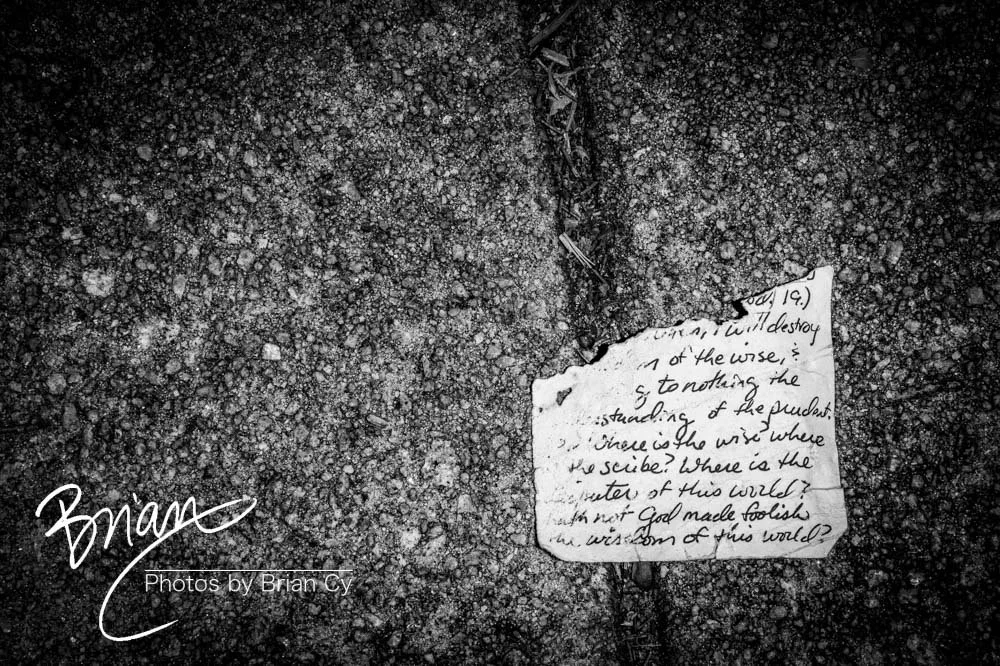 19.)
, I will destroy
of the wise, &
to nothing the
standing of the prudent.
Where is the wise? where
the scribe? Where is the
puter of this world?
ath not God made foolish
the wisdom of this world?
Brian
Photos by Brian Cy